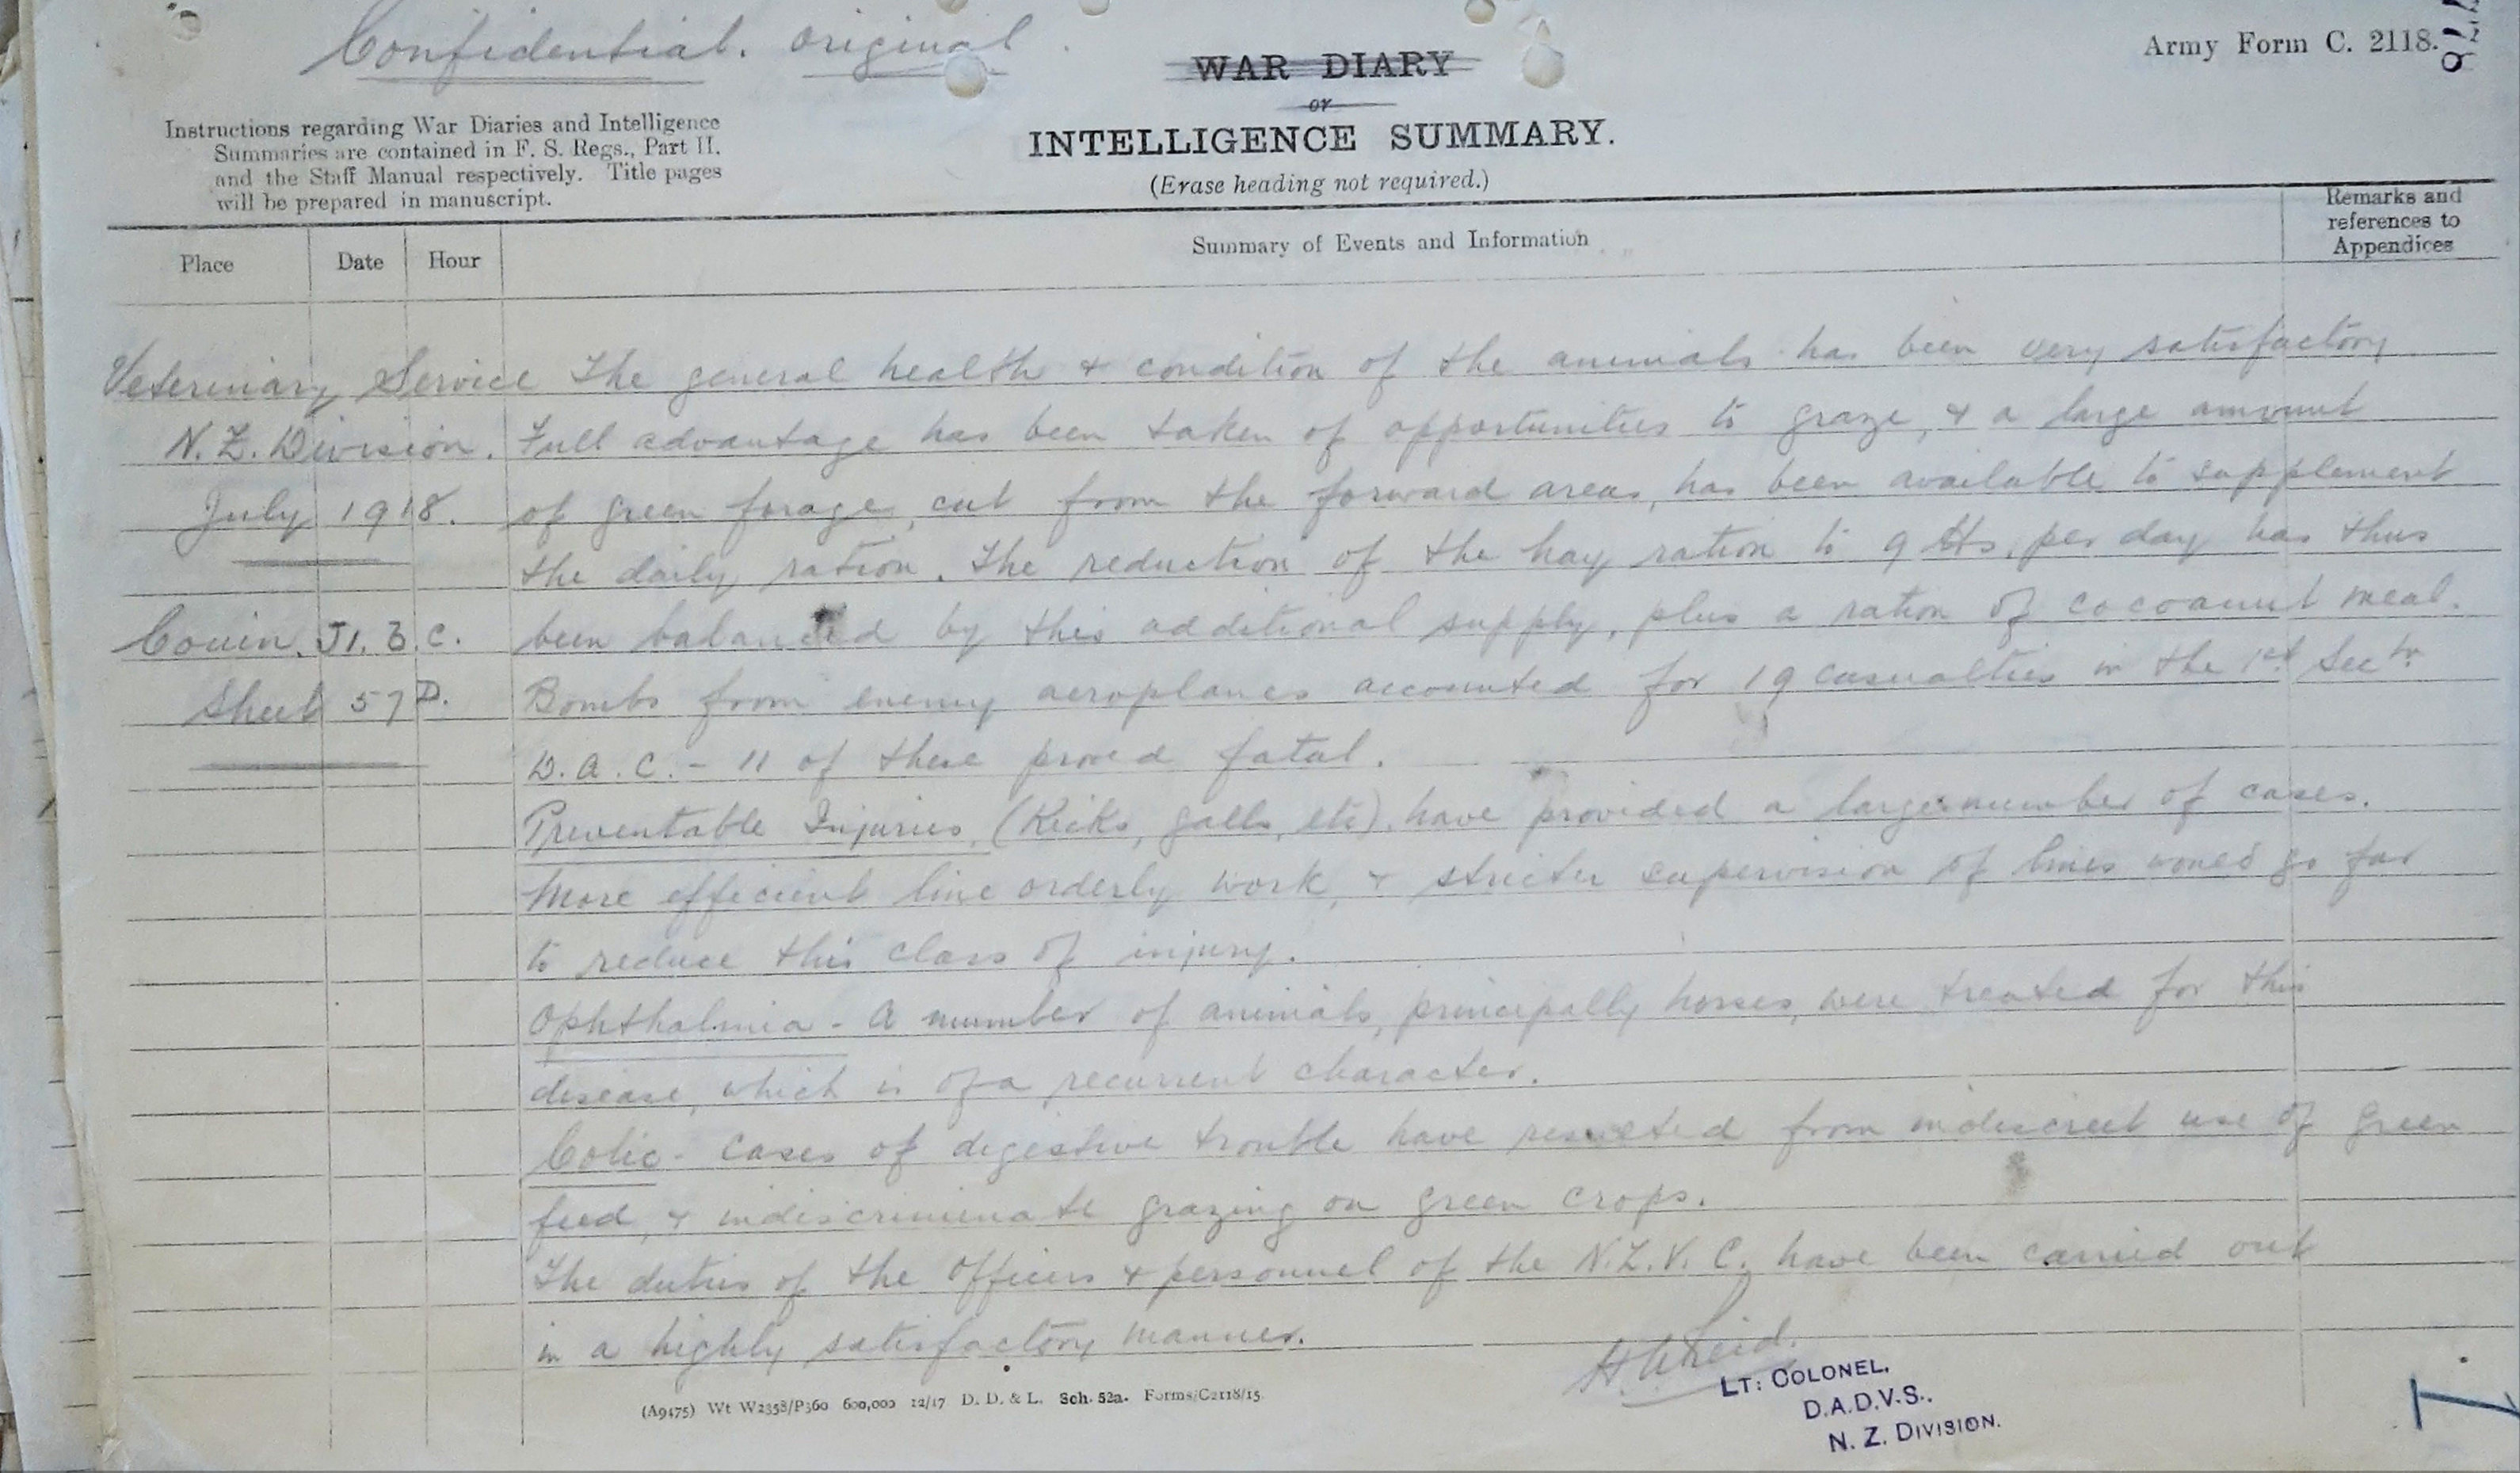 Confidential. Original.
Army Form C. 2118.
WAR DIARY
or
INTELLIGENCE SUMMARY.
(Erase heading not required.)
Instructions regarding War Diaries and Intelligence
Summaries are contained in F. S. Regs., Part II.
and the Staff Manual respectively. Title pages
will be prepared in manuscript.
Place Date Hour Summary of Events and Information Remarks and
references to
Appendices
Veterinary Service The general health & condition of the animals has been very satisfactory
N.Z. Division. Full advantage has been taken of opportunities to graze, & a large amount
July 1918. of green forage, cut from the forward areas, has been available to supplement
the daily ration. The reduction of the hay ration to 9 lbs. per day has thus
Couin. J1. B. C. been balanced by this additional supply, plus a ration of cocoanut meal.
Sheet 57D. Bombs from enemy aeroplanes accounted for 19 casualties in the 1st Sectn
D.A.C. - 11 of these proved fatal.
Preventable Injuries, (Kicks, galls, etc), have provided a large number of cases.
More efficient line orderly work, & stricter supervision of lines would go far
to reduce this class of injury.
Ophthalmia - A number of animals, principally horses, were treated for this
disease, which is of a recurrent character.
Colic - Cases of digestive trouble have resulted from indiscreet use of green
feed, & indiscriminate grazing on green crops.
The duties of the Officers & personnel of the N.Z.V.C. have been carried out
in a highly satisfactory manner.
H A Reid.
LT: COLONEL,
D.A.D.V.S.,
N. Z. DIVISION.
(A9475) Wt W2358/P360 600,000 12/17 D. D. & L. Sch. 52a. Forms/C2118/15.